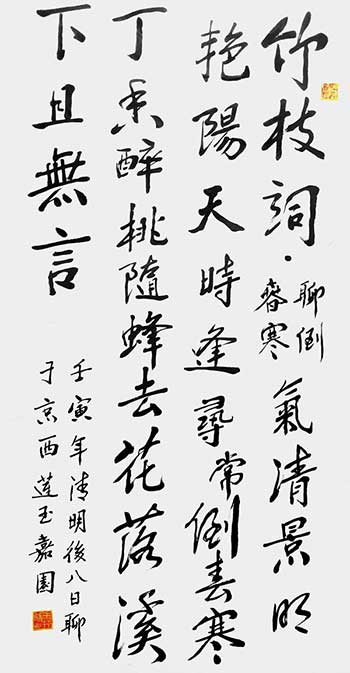 竹枝詞·聊倒春寒氣清景明
艳陽天時逢尋常倒春寒
丁香醉桃隨蜂去花落溪
下且無言
壬寅年清明後八日聊
于京西莲玉嘉園